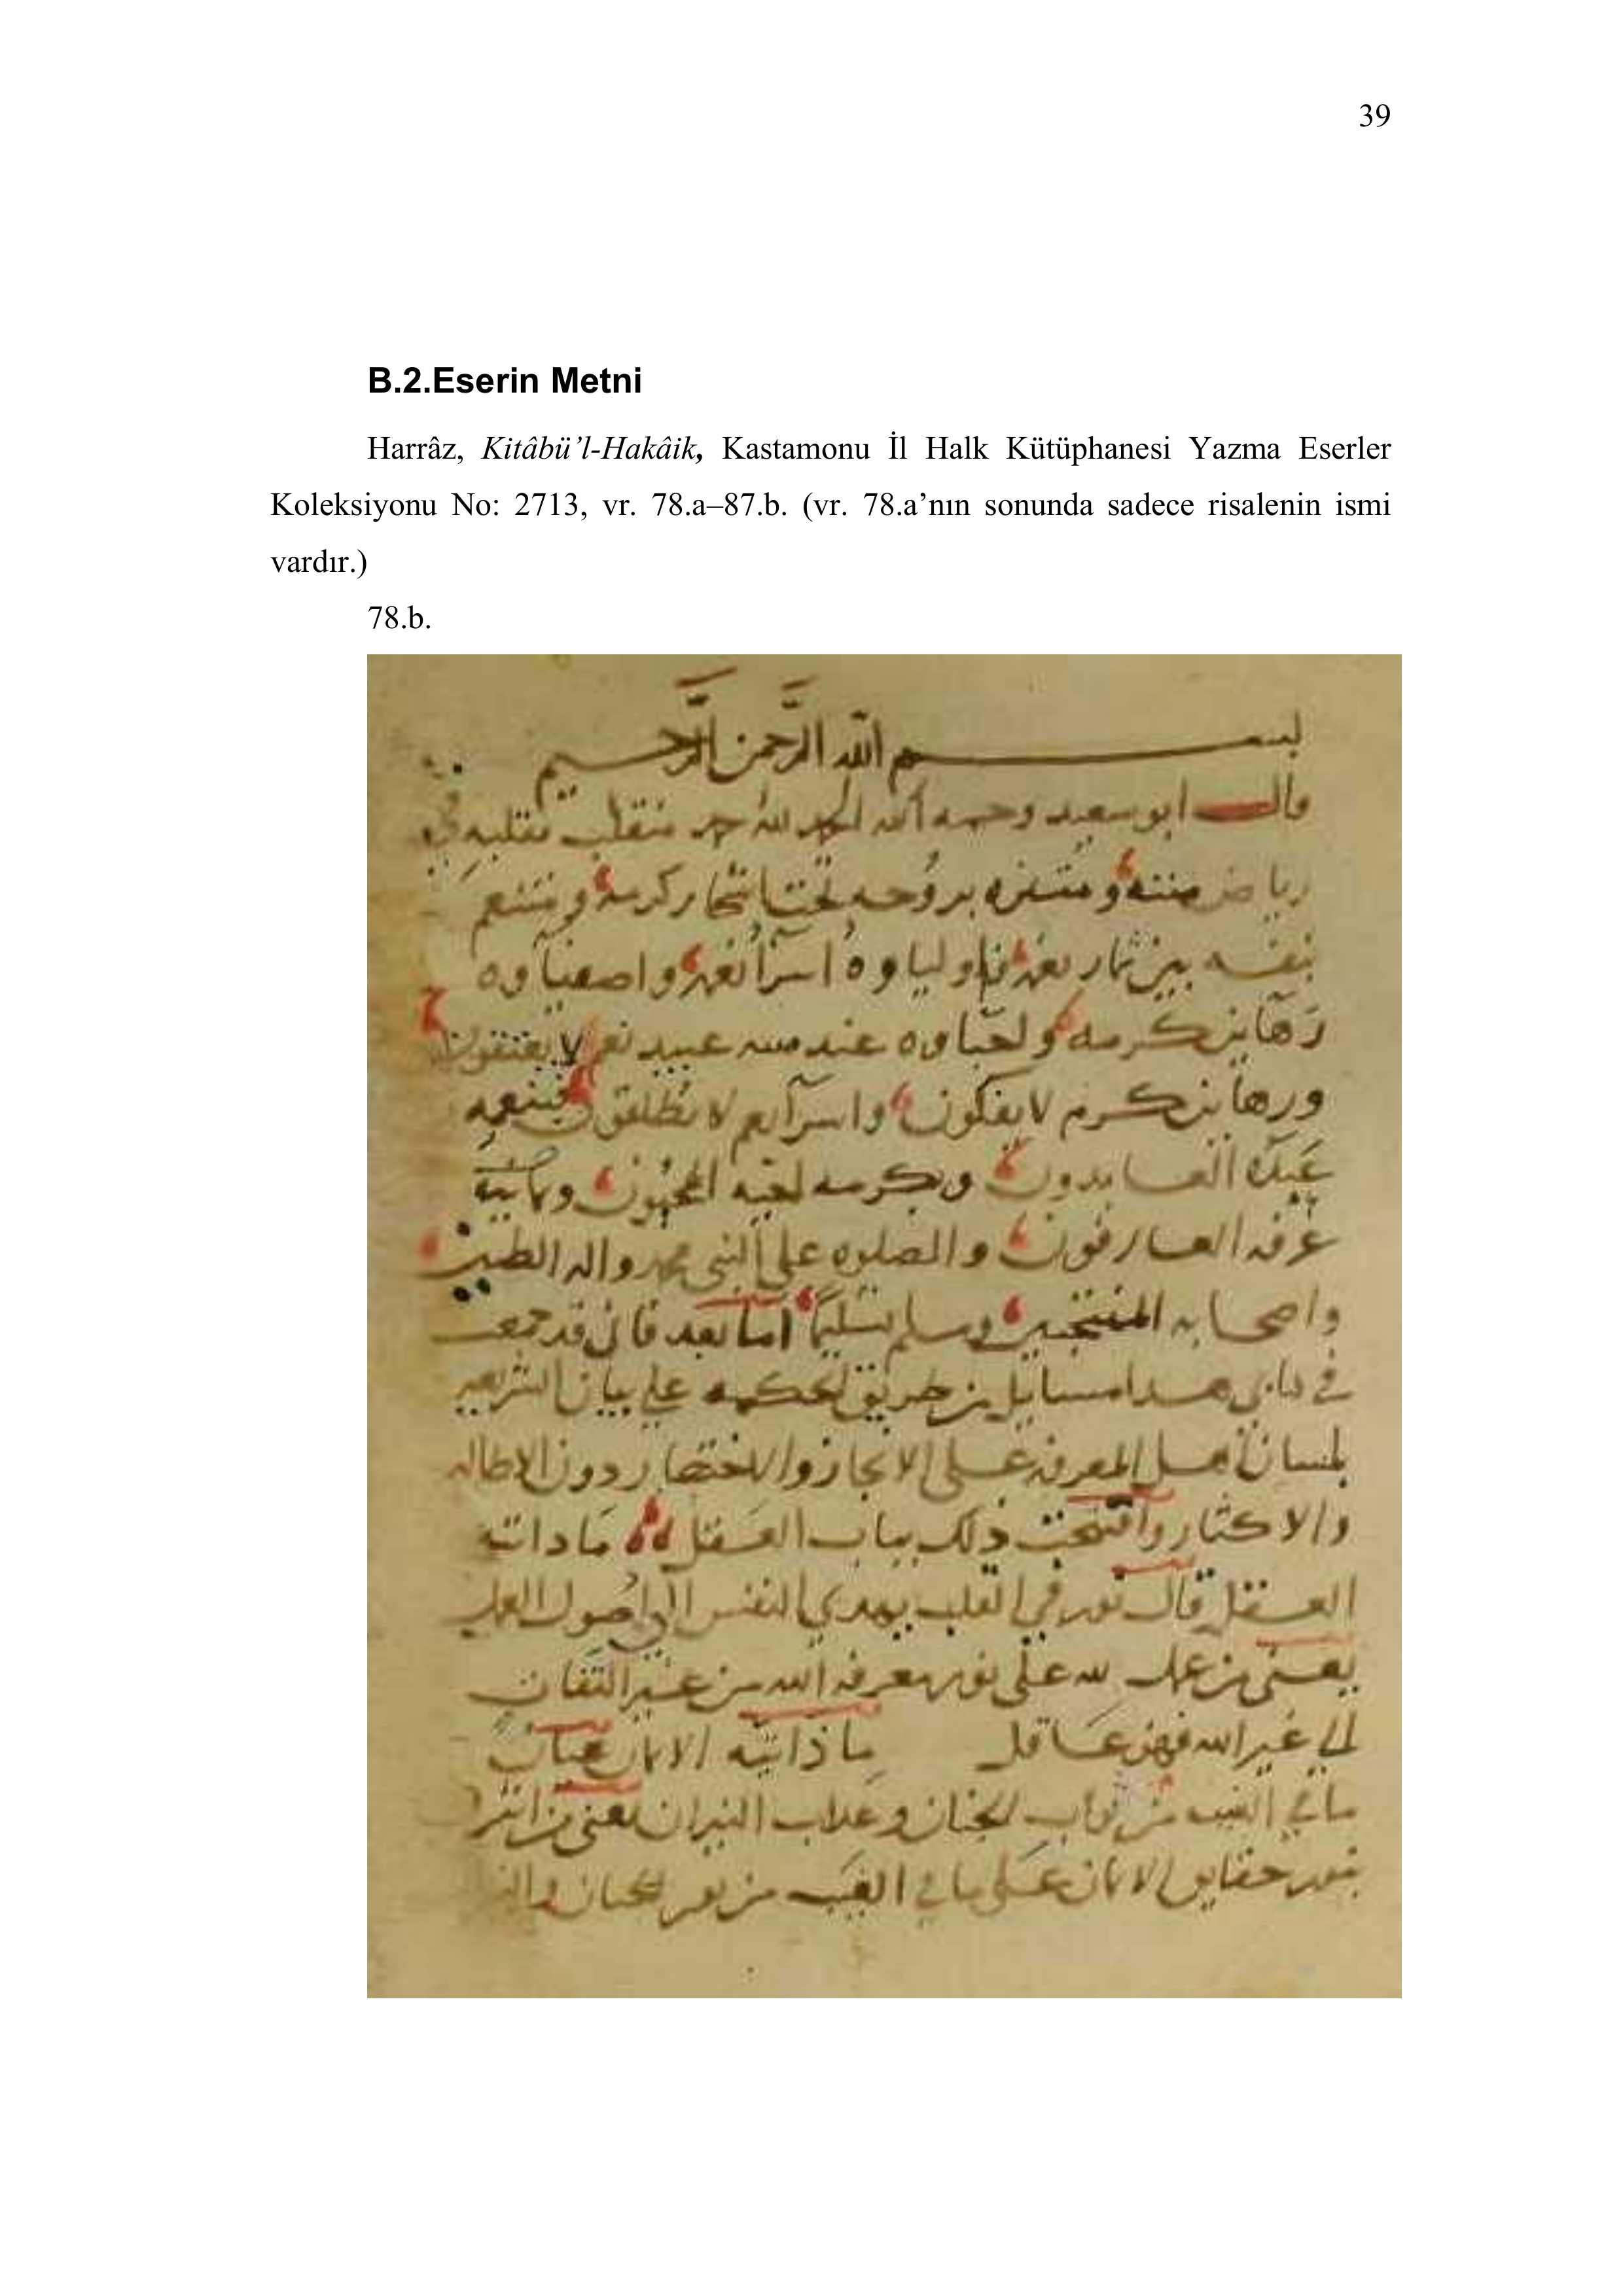 39
B.2.Eserin Metni
Harrâz, Kitâbü’l-Hakâik, Kastamonu İl Halk Kütüphanesi Yazma Eserler
Koleksiyonu No: 2713, vr. 78.a–87.b. (vr. 78.a’nın sonunda sadece risalenin ismi
vardır.)
78.b.
بسم الله الرَّحمن الرَّحيم
قال ابو سعيد رحمه الله الحمد لله حمد متقلب بقلبه في
رياض مننه ومتنزه بروحه تحت اشجار كرمه ومتنعم
بنفسه بين ثمار نعمه اولياوه اسرآ نعمه واصفياوه
رَهاين كرمه واحباوه عند عبيد نعم لا يعتقون
ورهاين كرم لا يفكون واسرآ نعم لا يطلقون فبنعمه
عَبَدَه العابدون وبكرمه احبّه المحبّون
عرفه العارفون والصلوه على النبى محمد واله الطيبين
واصحابه المنتجبين وسلم تسليمًا اما بعد فانى قد جمعت
في كتابى هدا مسايل من طريق الحكمه على بيان الشريعه
بلسان اهل المعرفه على الايجاز والاختصار دون الاطاله
والاكثار وافتتحت ذلك بباب العَقل ما داتية
العقل قال نور في القلب يهدي النفس الى اصول العلم
يعنى من عمل لله على نور معرفه الله من غير التفات
الى غير الله فهو عاقل ما ذاتية الايمان
ما في الغيب من ثواب الجنان وعذاب النيران يعنى من
بنور حقايق الايمان على ما في الغيب من نور الجنان